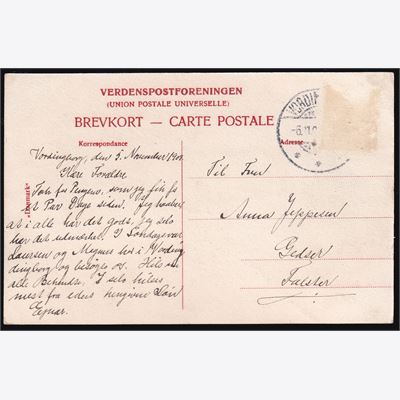 VERDENSPOSTFORENINGEN
(UNION POSTALE UNIVERSELLE)
BREVKORT — CARTE POSTALE
Korrespondance
Adresse
"Danmark"
VORDIN
Vordingborg, den 5. November
Kære Forældre
Tak for Pengene, som jeg fik for
et Par Dage siden. Jeg haaber
at i alle har det godt, jeg selv
har det udmærket. I Søndags var
Laursen og Magnus her i Vording
dingborg og besøgte os. Hils
alle Bekendte. I selv hilses
mest fra eders hengivne Søn
Ejnar.
Til Fru
Anna Jeppesen
Gedser
Falster